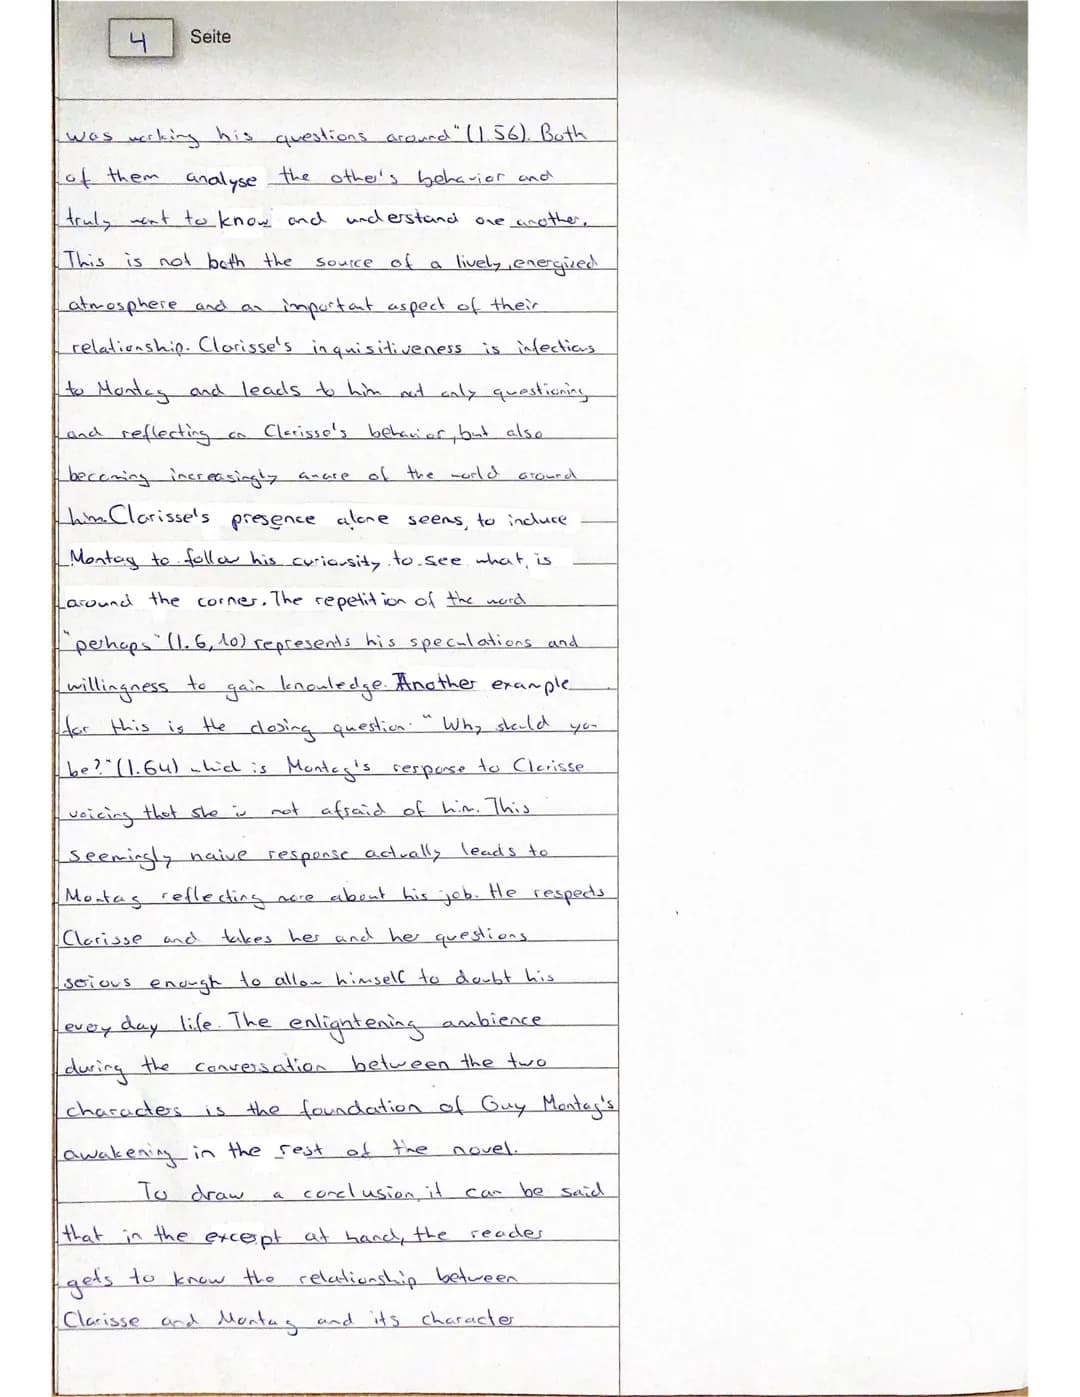 4 Seite
was working his questions around" (l.56). Both
of them analyse the other's behavior and
truly want to know and understand one another.
This is not both the source of a lively, energized
atmosphere and an important aspect of their
relationship. Clarisse's inquisitiveness is infectious
to Montag and leads to him not only questioning
and reflecting on Clarisse's behavior, but also
becoming increasingly aware of the world around
him. Clarisse's presence alone seems, to induce
Montag to follow his curiousity to see what is
around the corner. The repetition of the word
"perhaps" (l. 6, 10) represents his speculations and
willingness to gain knowledge. Another example
for this is the closing question: "Why should you
be?" (l.64) which is Montag's response to Clarisse
voicing that she is not afraid of him. This
seemingly naive response actually leads to
Montag reflecting more about his job. He respects
Clarisse and takes her and her questions
serious enough to allow himself to doubt his
every day life. The enlightening ambience
during the conversation between the two
characters is the foundation of Guy Montag's
awakening in the rest of the novel.
To draw a conclusion, it can be said
that in the excerpt at hand, the reader
gets to know the relationship between
Clarisse and Montag and its character